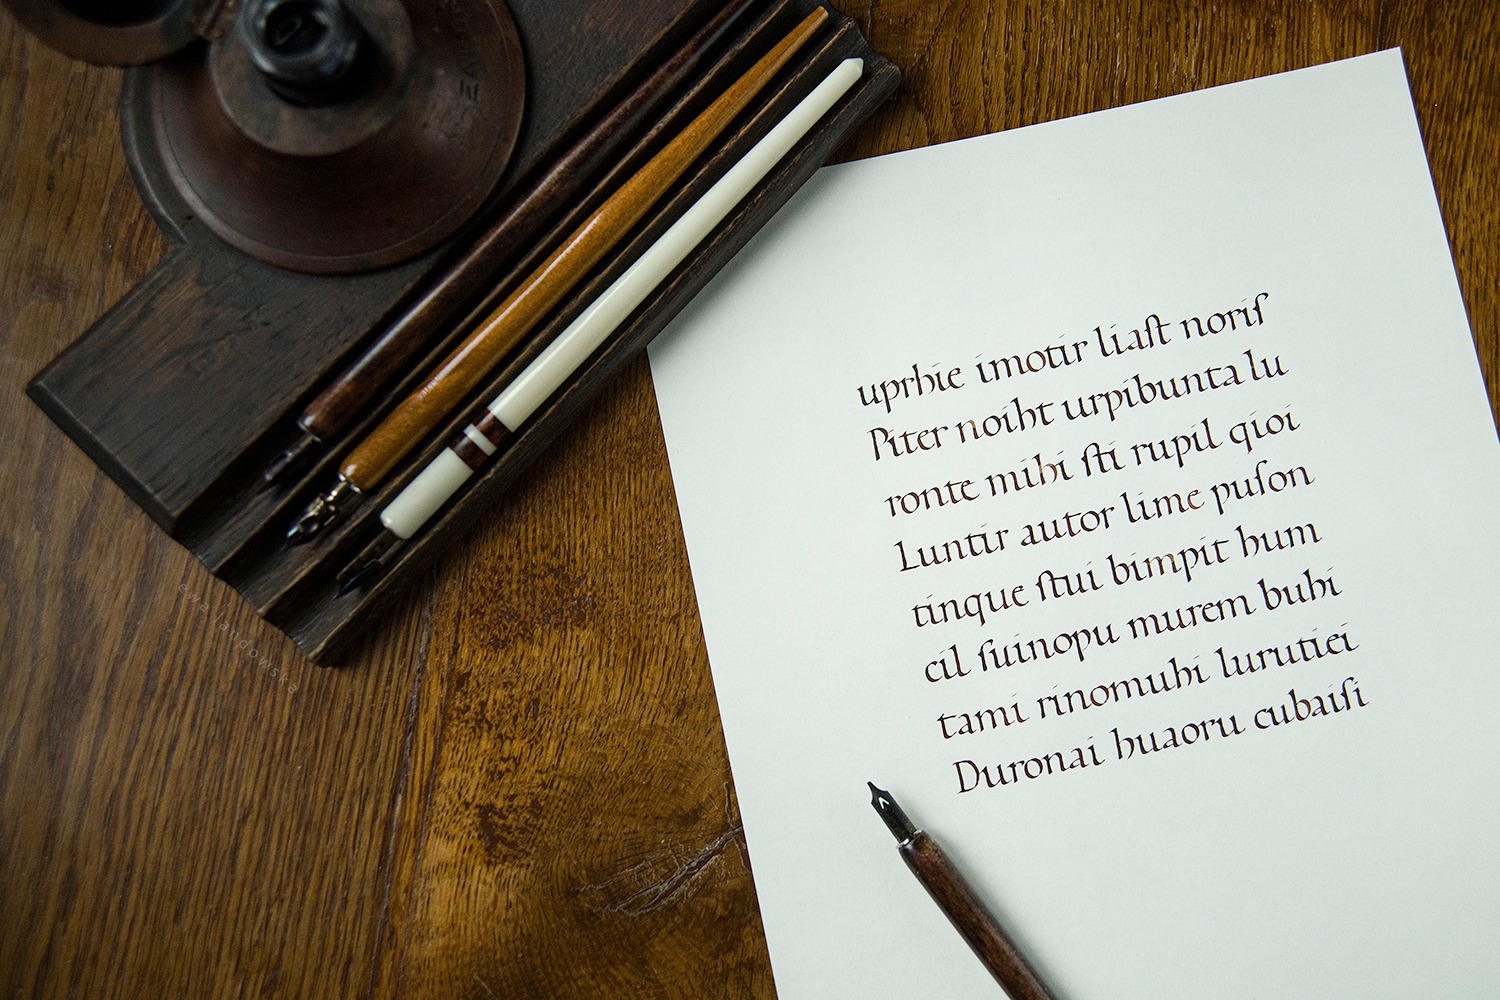 uprhie imotir liaſt noriſ
Piter noiht urpibunta lu
ronte mihi ſti rupil qioi
Luntir autor lime puſon
tinque ſtui bimpit hum
cil ſuinopu murem buhi
tami rinomuhi lurutiei
Duronai huaoru cubaiſi
ewa landowska